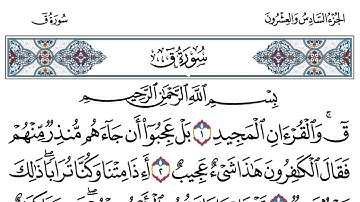 الجزء السادس والعشرون
سورة ق
سورة ق
بسم الله الرحمن الرحيم
قٓۚ وَٱلْقُرْءَانِ ٱلْمَجِيدِ ١ بَلْ عَجِبُوٓا۟ أَن جَآءَهُم مُّنذِرٌ مِّنْهُمْ
فَقَالَ ٱلْكَٰفِرُونَ هَٰذَا شَىْءٌ عَجِيبٌ ٢ أَءِذَا مِتْنَا وَكُنَّا تُرَابًا ۖ ذَٰلِكَ